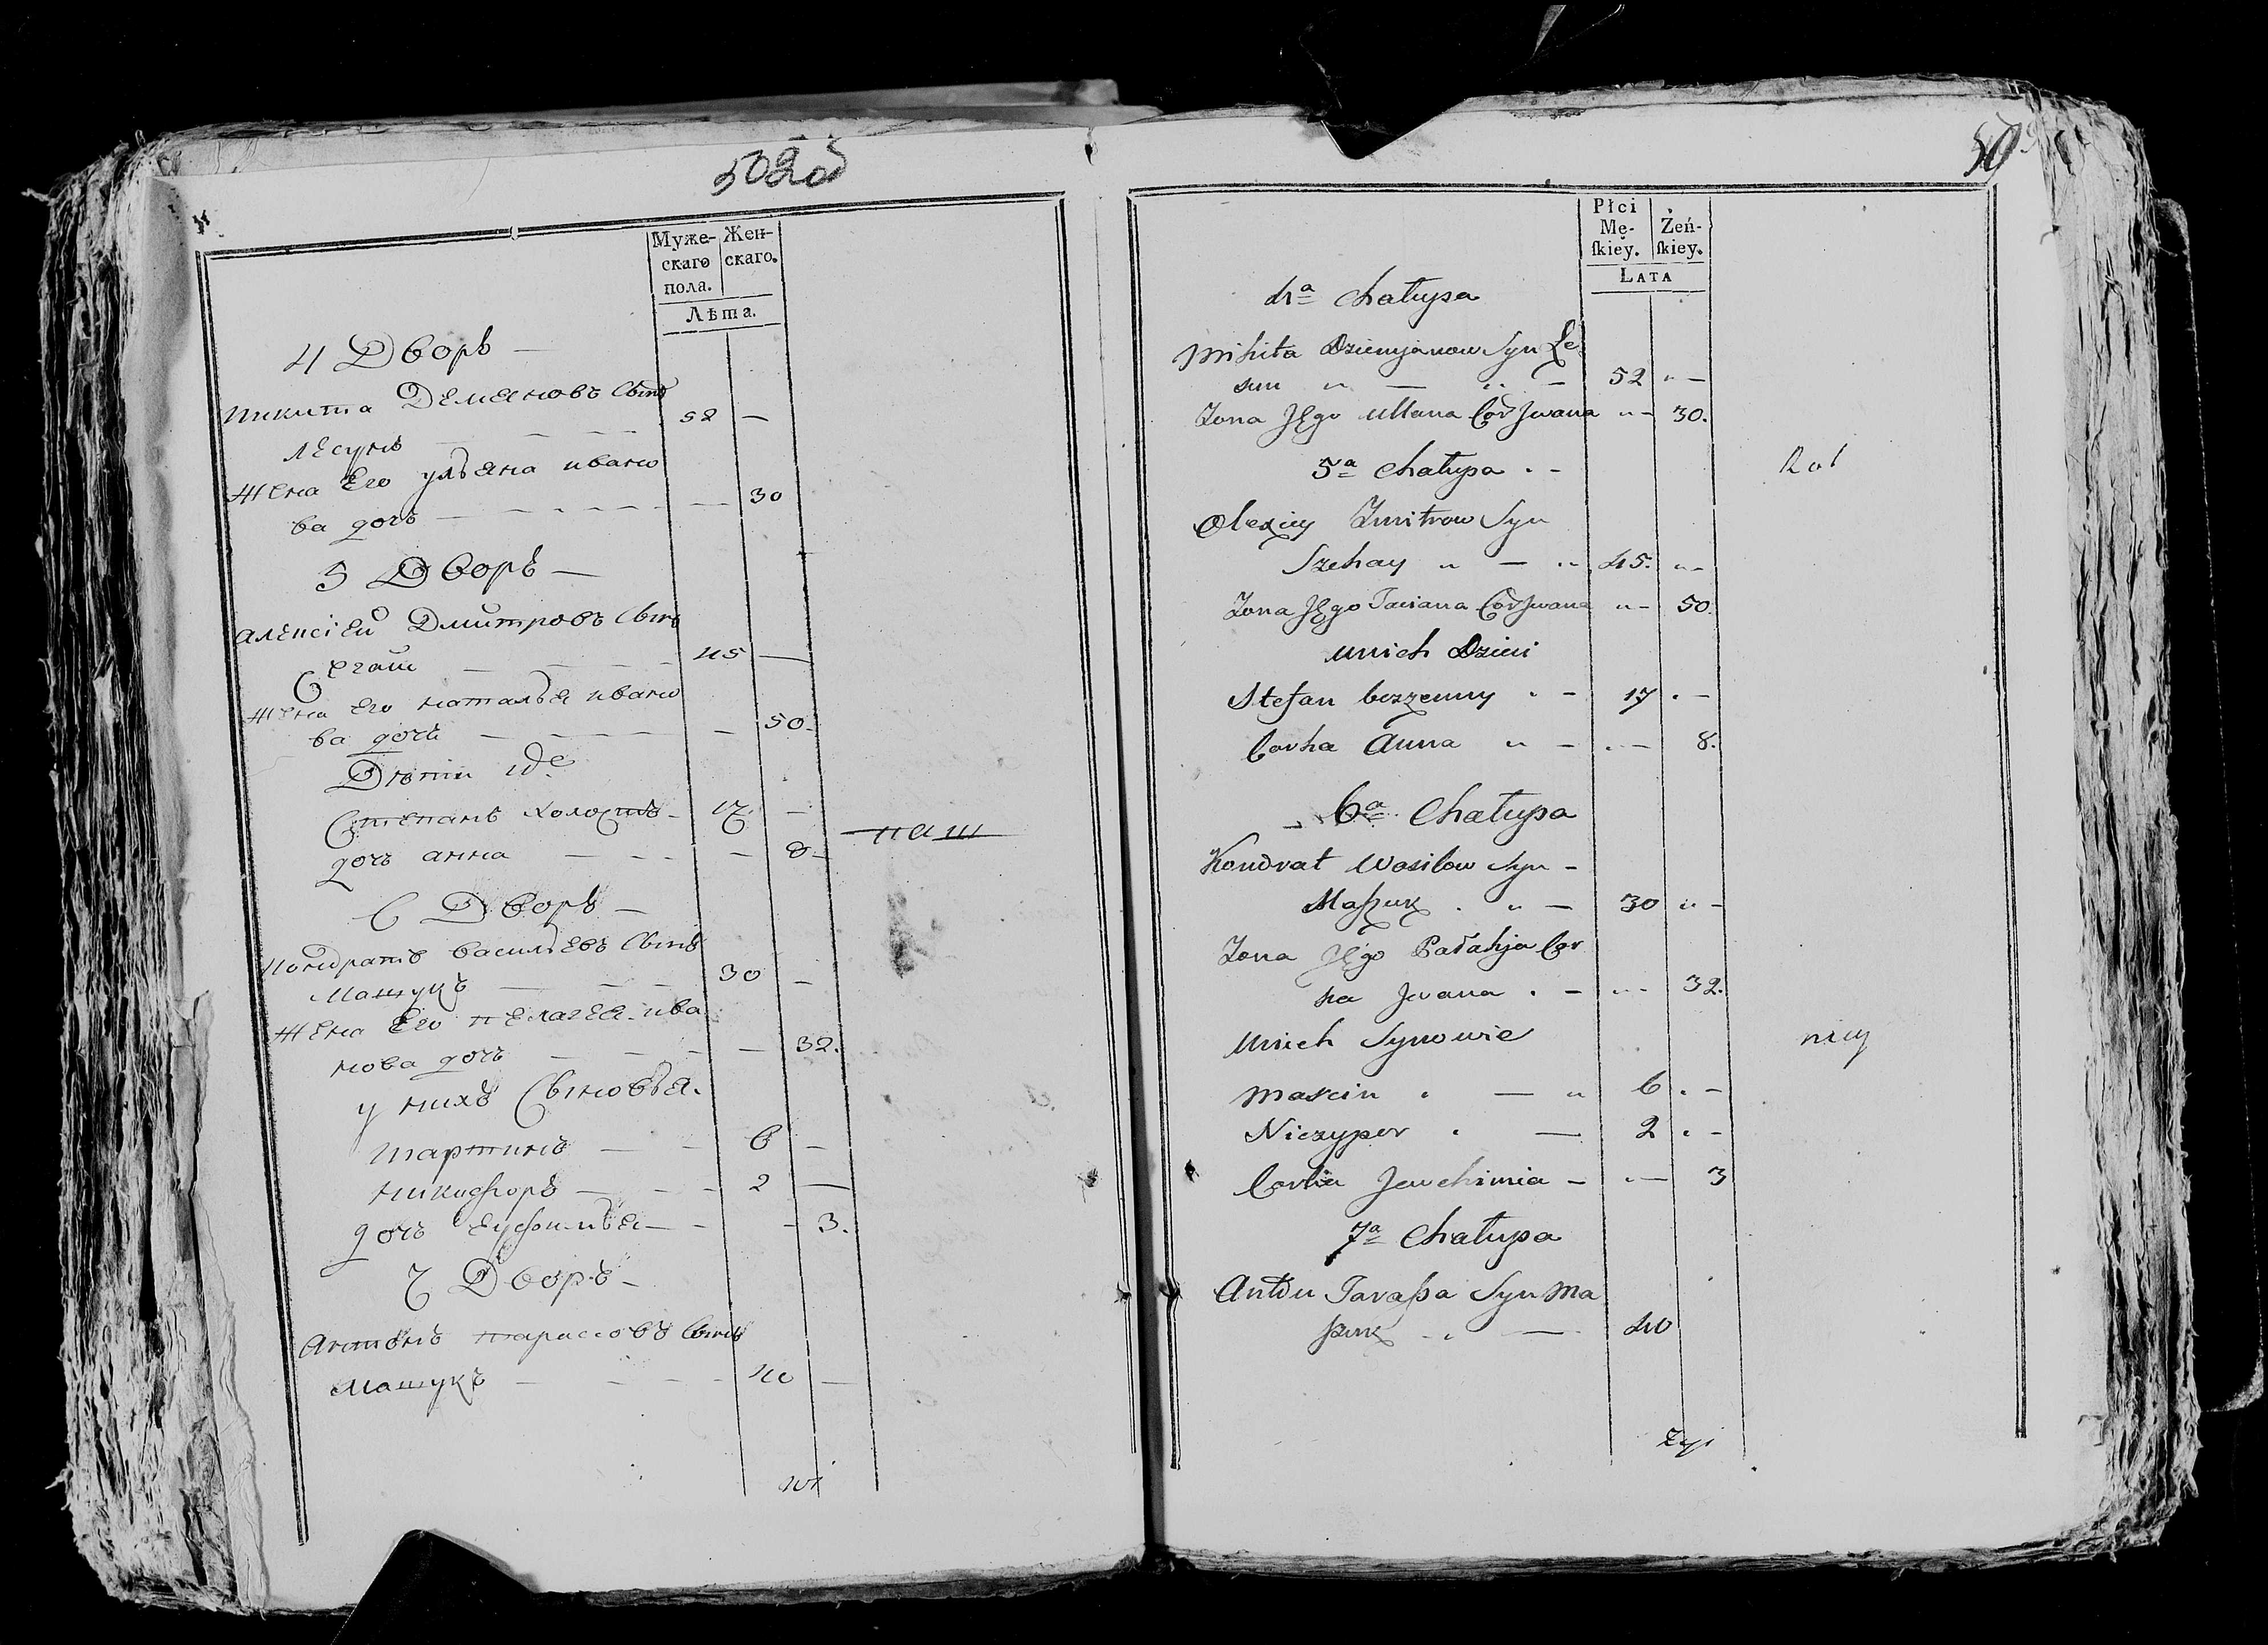 502об
Муже-
скаго
пола.
Жен-
скаго.
Лѣта.
4 Дворъ —
Никита Демяновъ Сынъ
Лесунъ — — — — 52 —
Жена Его ульяна ивано
ва дочь — — — — — 30
5 Дворъ —
Алексiей Дмитровъ Сынъ
— — — — 45 —
Жена Его наталья ивано
ва дочь — — — — — 50.
Дѣти
Степанъ холостъ — 17 —
дочь анна — — — — 8 —
паш
6 Дворъ —
Кондратъ васильевъ Сынъ
Машукъ — — — 30 —
Жена Его пелагея ива
нова дочь — — — — 32.
у нихъ Сыновья.
мартинъ — — 6 —
никифоръ — — — 2 —
дочь Еуфимья — — — 3.
7 Дворъ —
Антонъ тарассовъ Сынъ
Машукъ — — — — 40 —
Płci
Mę-
ſkiey.
Żeń-
ſkiey.
LATA
4ᵃ Chałupa
Mikita Dziemjanow Syn Le
sun „ — „ — 52 „ —
Zona Jęgo Ullana Cor Jwana „ — 30.
5ᵃ Chałupa . —
Rol
Olexiey Zmitrow Syn
Szehay „ — „ 45. „ —
Zona Jęgo Taciana Cor Jwana „ — 50.
Unich Dzieci
Stefan bezzenny . — 17 . —
Corka Anna „ — . — 8.
6ᵃ Chałupa
Kondrat Wasilow Syn —
Maszuk . „ — 30 „ —
Zona Jęgo Pałahja Cor
ka Jwana . — „ — 32.
Unich Synowie
nicy
Marcin . — „ 6 . —
Niczyper . — 2 . —
Corka Jewchimia — . — 3
7ᵃ Chałupa
Anton Tarasza Syn Ma
szuk . . — 40